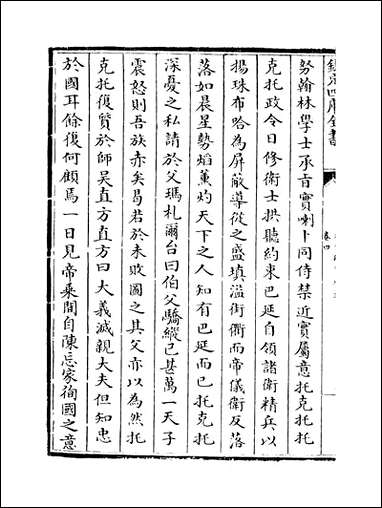 欽定四庫全書
卷四
努翰林學士承旨實喇卜同侍禁近實屬意托克托托
克托政令日修衛士拱聽約束巴延自領諸衛精兵以
揚珠布哈為屏蔽導從之盛填溢街衢而帝儀衛反落
落如晨星勢焰薰灼天下之人知有巴延而已托克托
深憂之私請於父瑪札爾台曰伯父驕縱已甚萬一天子
震怒則吾族赤矣曷若於未敗圖之其父亦以為然托
克托復質於師吴直方直方曰大義滅親大夫但知忠
於國耳餘復何顧焉一日見帝乗間自陳忘家徇國之意